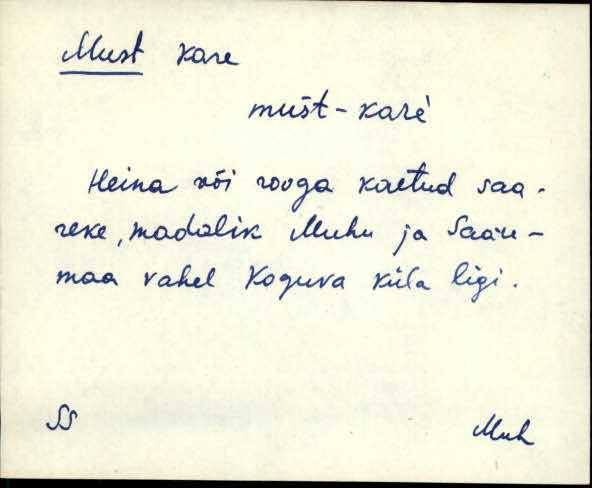 Must kare
must-karè
Heina või rooga kaetud saa-
reke, madalik Muhu ja Saare-
maa vahel Koguva küla ligi.
SS
Muh